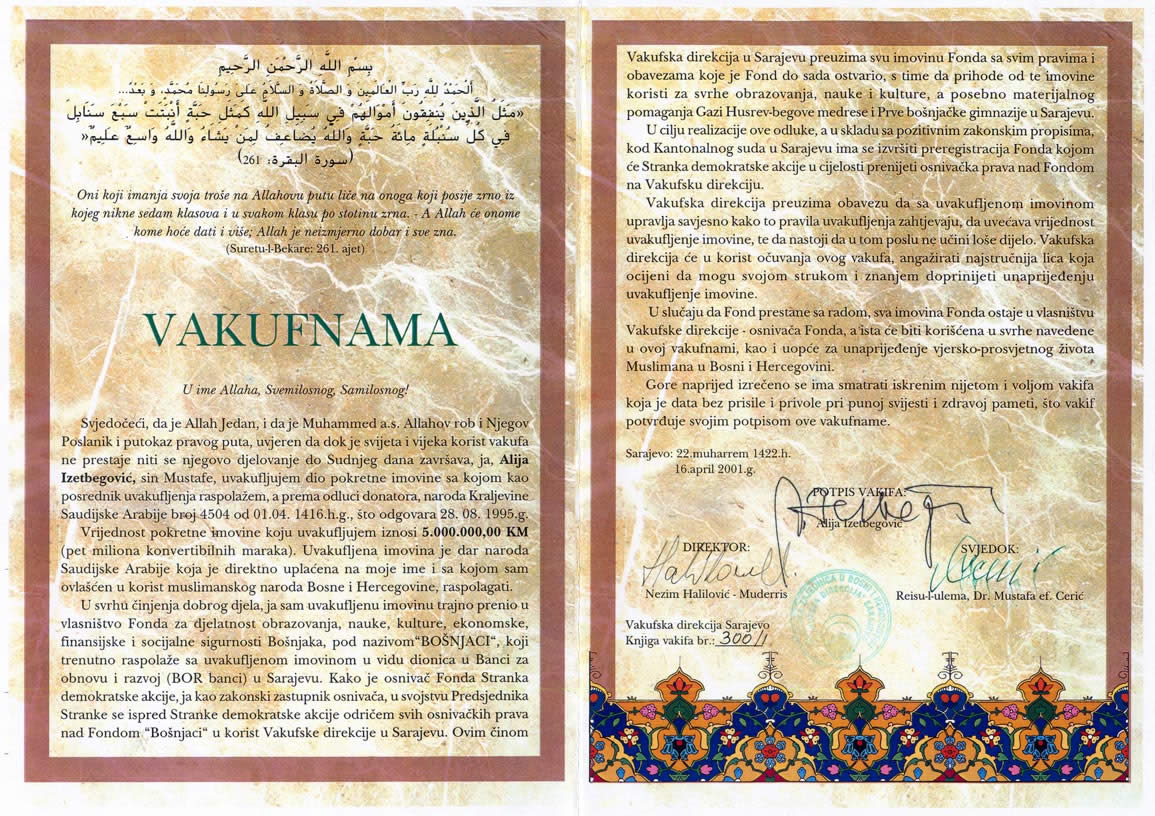 بِسْمِ اللَّهِ الرَّحْمَنِ الرَّحِيمِ
أَلْحَمْدُ لِلَّهِ رَبِّ الْعَالَمِينَ وَ الصَّلَاةُ وَ السَّلَامُ عَلَى رَسُولِنَا مُحَمَّدٍ، وَ بَعْدُ...
«مَثَلُ الَّذِينَ يُنفِقُونَ أَمْوَالَهُمْ فِي سَبِيلِ اللهِ كَمَثَلِ حَبَّةٍ أَنْبَتَتْ سَبْعَ سَنَابِلَ
فِي كُلِّ سُنْبُلَةٍ مِائَةُ حَبَّةٍ وَاللَّهُ يُضَاعِفُ لِمَنْ يَشَاءُ وَاللَّهُ وَاسِعٌ عَلِيمٌ»
(سورة البقرة: 261)
Oni koji imanja svoja troše na Allahovu putu liče na onoga koji posije zrno iz
kojeg nikne sedam klasova i u svakom klasu po stotinu zrna. - A Allah će onome
kome hoće dati i više; Allah je neizmjerno dobar i sve zna.
(Suretu-l-Bekare: 261. ajet)
VAKUFNAMA
U ime Allaha, Svemilosnog, Samilosnog!
Svjedočeći, da je Allah Jedan, i da je Muhammed a.s. Allahov rob i Njegov
Poslanik i putokaz pravog puta, uvjeren da dok je svijeta i vijeka korist vakufa
ne prestaje niti se njegovo djelovanje do Sudnjeg dana završava, ja, Alija
Izetbegović, sin Mustafe, uvakufljujem dio pokretne imovine sa kojom kao
posrednik uvakufljenja raspolažem, a prema odluci donatora, naroda Kraljevine
Saudijske Arabije broj 4504 od 01.04. 1416.h.g., što odgovara 28. 08. 1995.g.
Vrijednost pokretne imovine koju uvakufljujem iznosi 5.000.000,00 KM
(pet miliona konvertibilnih maraka). Uvakufljena imovina je dar naroda
Saudijske Arabije koja je direktno uplaćena na moje ime i sa kojom sam
ovlašćen u korist muslimanskog naroda Bosne i Hercegovine, raspolagati.
U svrhu činjenja dobrog djela, ja sam uvakufljenu imovinu trajno prenio u
vlasništvo Fonda za djelatnost obrazovanja, nauke, kulture, ekonomske,
finansijske i socijalne sigurnosti Bošnjaka, pod nazivom“BOŠNJACI“, koji
trenutno raspolaže sa uvakufljenom imovinom u vidu dionica u Banci za
obnovu i razvoj (BOR banci) u Sarajevu. Kako je osnivač Fonda Stranka
demokratske akcije, ja kao zakonski zastupnik osnivača, u svojstvu Predsjednika
Stranke se ispred Stranke demokratske akcije odričem svih osnivačkih prava
nad Fondom “Bošnjaci‘ u korist Vakufske direkcije u Sarajevu. Ovim činom
Vakufska direkcija u Sarajevu preuzima svu imovinu Fonda sa svim pravima i
obavezama koje je Fond do sada ostvario, s time da prihode od te imovine
koristi za svrhe obrazovanja, nauke i kulture, a posebno materijalnog
pomaganja Gazi Husrev-begove medrese i Prve bošnjačke gimnazije u Sarajevu.
U cilju realizacije ove odluke, a u skladu sa pozitivnim zakonskim propisima,
kod Kantonalnog suda u Sarajevu ima se izvršiti preregistracija Fonda kojom
će Stranka demokratske akcije u cijelosti prenijeti osnivačka prava nad Fondom
na Vakufsku direkciju.
Vakufska direkcija preuzima obavezu da sa uvakufljenom imovinom
upravlja savjesno kako to pravila uvakufljenja zahtjevaju, da uvećava vrijednost
uvakufljenje imovine, te da nastoji da u tom poslu ne učini loše dijelo. Vakufska
direkcija će u korist očuvanja ovog vakufa, angažirati najstručnija lica koja
ocijeni da mogu svojom strukom i znanjem doprinijeti unaprijeđenju
uvakufljenje imovine.
U slučaju da Fond prestane sa radom, sva imovina Fonda ostaje u vlasništvu
Vakufske direkcije - osnivača Fonda, a ista će biti korišćena u svrhe navedene
u ovoj vakufnami, kao i uopće za unaprijeđenje vjersko-prosvjetnog života
Muslimana u Bosni i Hercegovini.
Gore naprijed izrečeno se ima smatrati iskrenim nijetom i voljom vakifa
koja je data bez prisile i privole pri punoj svijesti i zdravoj pameti, što vakif
potvrđuje svojim potpisom ove vakufname.
Sarajevo: 22.muharrem 1422.h.
16.april 2001.g.
POTPIS VAKIFA:
Alija Izetbegović
DIREKTOR:
SVJEDOK:
Nezim Halilović - Muderris
Reisu-l-ulema, Dr. Mustafa ef. Cerić
Vakufska direkcija Sarajevo
Knjiga vakifa br.: 300/1